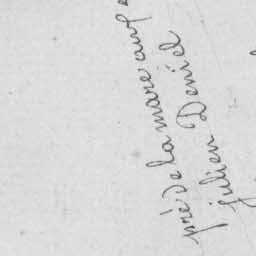 pré de la mare aux
Julien Deniel